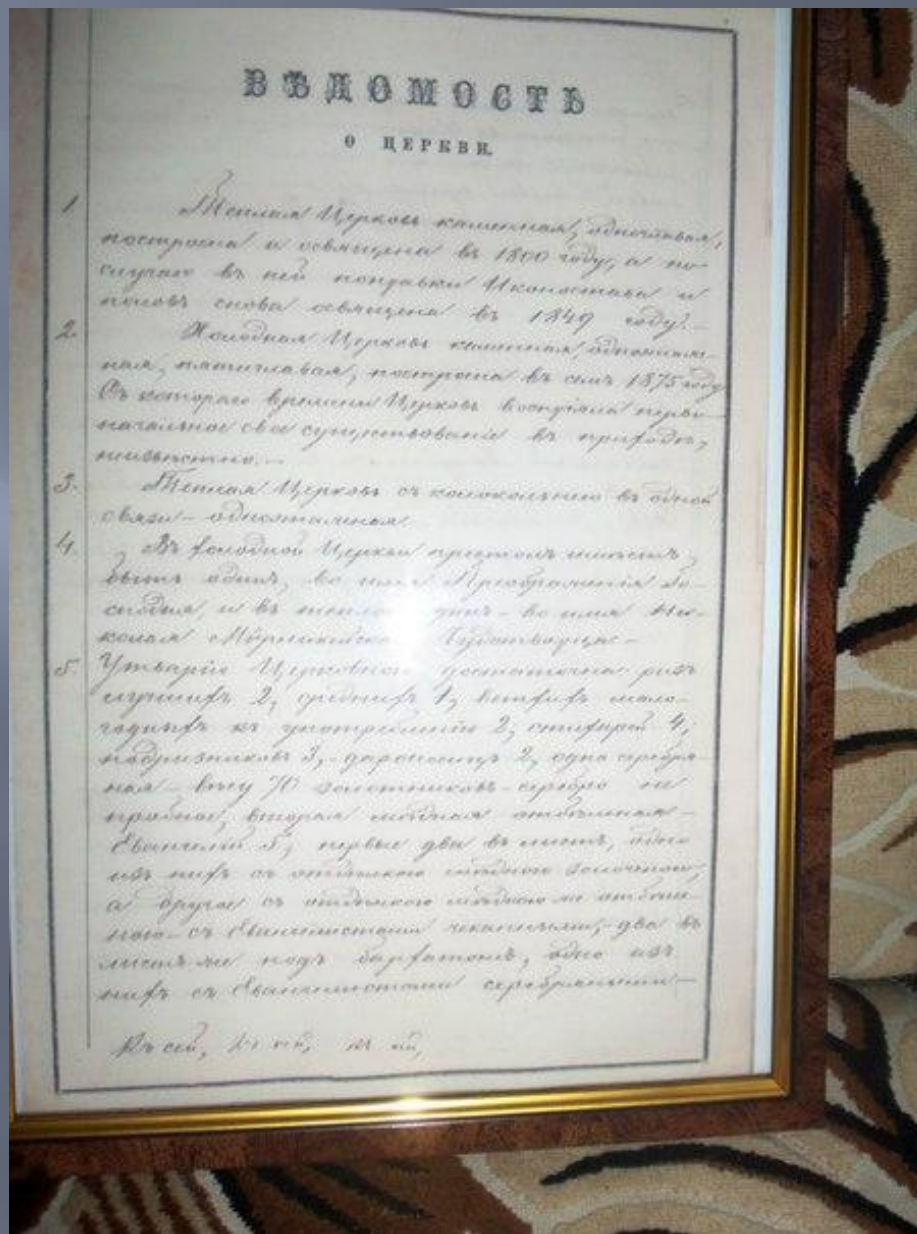 ВѢДОМОСТЬ
О ЦЕРКВИ.
1. Теплая Церковь каменная, одноглавая,
построена и освящена въ 1800 году, а по
случаю въ ней поправки Иконостаса и
половъ снова освящена въ 1849 году. –
2. Холодная Церковь каменная, одноэтаж-
ная, пятиглавая, построена въ семъ 1875 году
Съ котораго времени Церковь воспріяла перво-
начальное свое существованіе въ приходѣ,
неизвѣстно. –
3. Теплая Церковь съ колокольнею въ одной
связи – одноэтажная
4. Въ холодной Церкви престолъ имѣетъ
быть одинъ, во имя Преображенія Го-
сподня, и въ теплой одинъ – во имя Ни-
колая Мѵрликійска Чудотворца –
5. Утварію Церковною достаточна ризъ
лучшихъ 2, среднихъ 1, ветхихъ мало-
годныхъ къ употребленію 2, стихарей 4,
подризниковъ 3, – дароносицъ 2, одна серебря-
ная – вѣсу 70 золотниковъ – серебро не
пробное, вторая мѣдная –
Евангелій 5, первые два въ листъ, одно
изъ нихъ съ мѣдною золоченою,
а другое съ мѣдною же
– съ Евангелистами чеканными, – два въ
листъ же подъ бархатомъ, одно изъ
нихъ съ Евангелистами серебряными –
Къ сей, къ сей, къ сей,